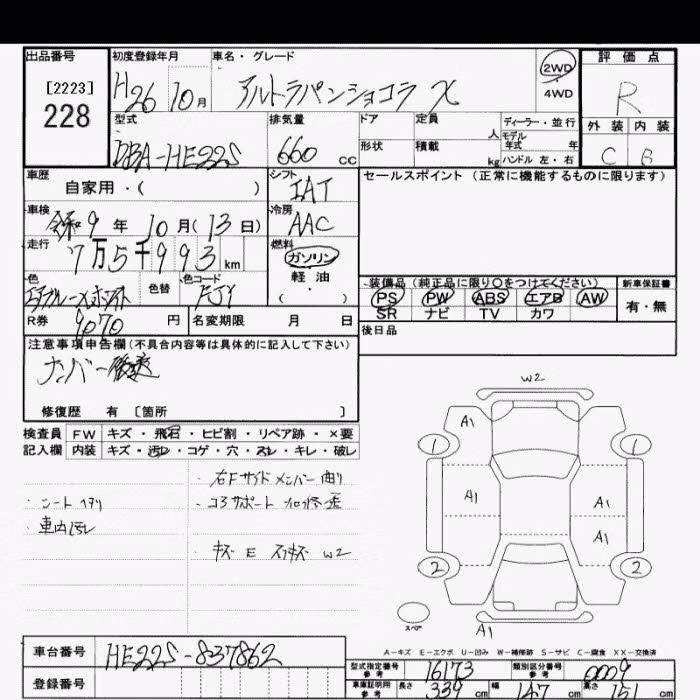 出品番号 初度登録年月 車名・グレード 評価点
[2223] H26 10月 アルトラパンショコラ X 2WD R
228 4WD
型式 排気量 ドア 定員 ディーラー・並行 外装 内装
人 モデル年式 年
DBA-HE22S 660 cc 形状 積載 kg ハンドル 左・右 C B
車歴 シフト セールスポイント (正常に機能するものに限ります)
自家用・( ) IAT
車検 冷房
令和9年 10月(13日) AAC
走行 燃料
7万5千993km ガソリン
色 色替 色コード 軽油 装備品 (純正品に限り○をつけてください) 新車保証書
FJY ・( ) PS PW ABS エアB AW 有・無
SR ナビ TV カワ
R券 9070 円 名変期限 月 日 後日品
注意事項申告欄(不具合内容等は具体的に記入して下さい)
ナンバー
修復歴 有 [箇所 ]
W2
検査員 FW キズ・飛石・ヒビ割・リペア跡・×要 A1
記入欄 内装 キズ・汚レ・コゲ・穴・スレ・キレ・破レ 1 1
右Fサイドメンバー曲り
・シートヘタリ ・コアサポート A1 A1
・車内汚レ A1
キズ E W2
2 2
スペア
A1
A-キズ E-エクボ U-凹み W-補修跡 S-サビ C-腐食 XX-交換済
車台番号 HE22S-837862
型式指定番号 参考 16173 類別区分番号 参考 0009
登録番号 車庫証明用 参考 長さ 339 cm 幅 147 cm 高さ 151 cm